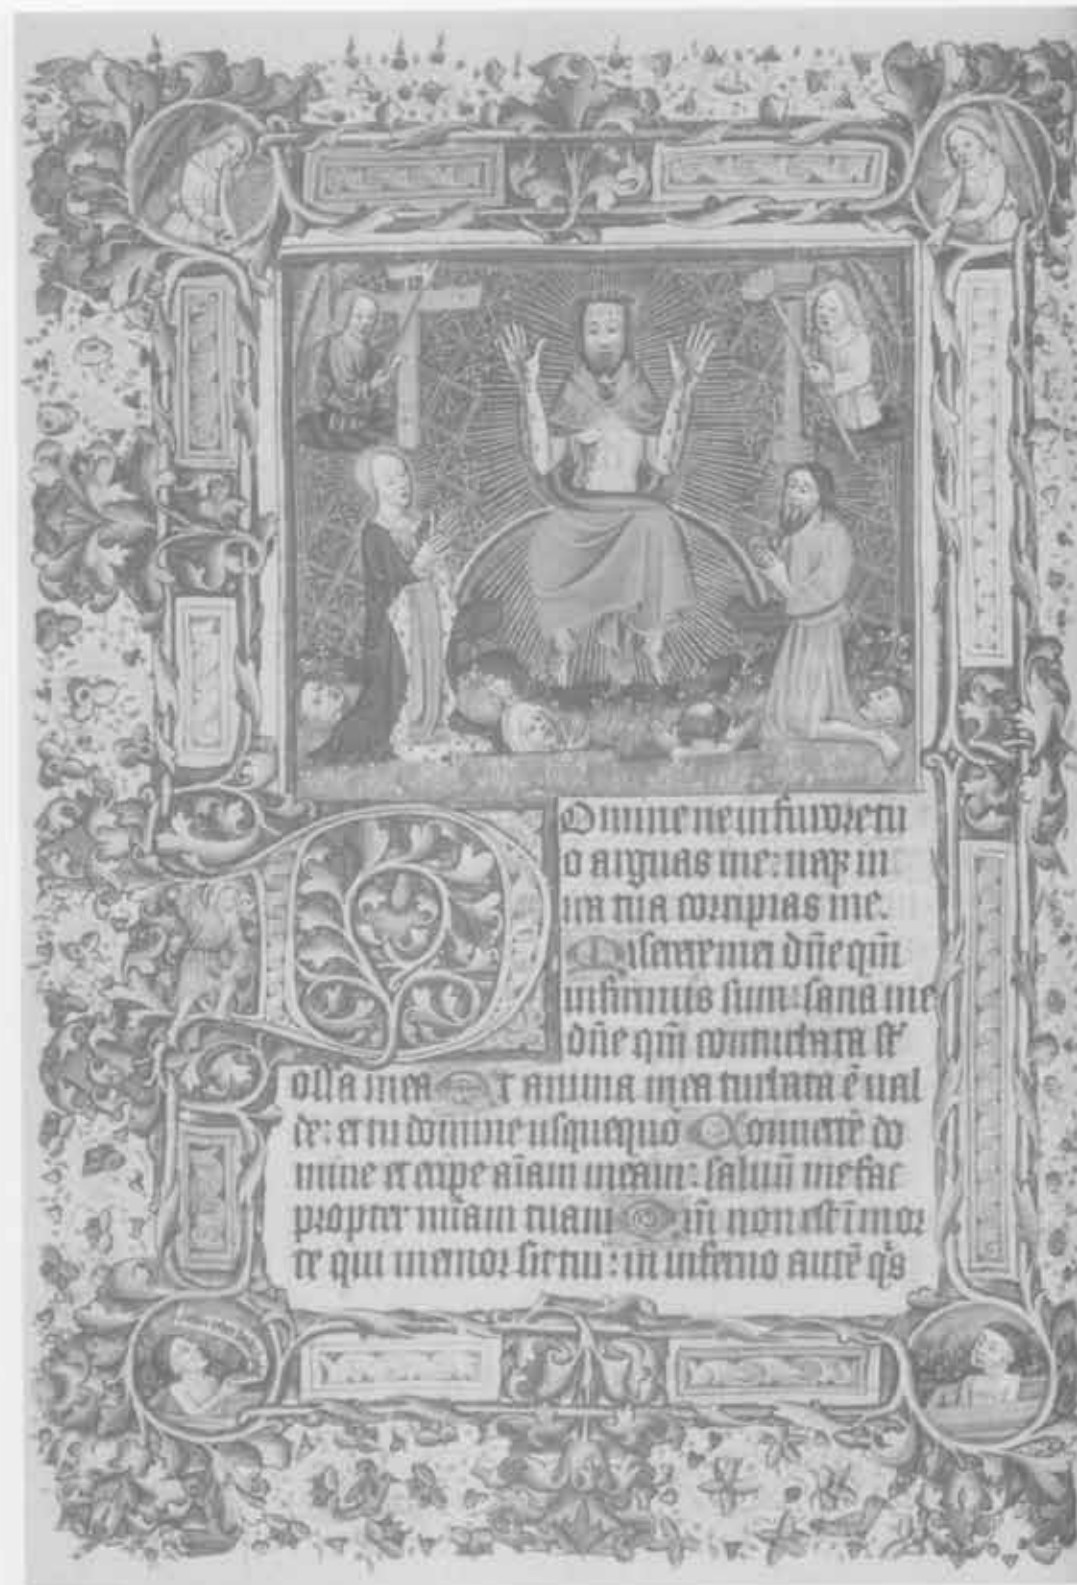 Domine ne in furore tu
o arguas me: neqz in
ira tua corripias me.
Miserere mei dn̄e qm̄
infirmus sum: sana me
dn̄e qm̄ conturbata st̄
ossa mea Et anima mea turbata ē ual
de: et tu domine usquequo Conuerte do
mine et eripe aīam meam: saluū me fac
propter mīam tuam Qm̄ non est ī mor
te qui memor sit tui: in inferno autē q̄s